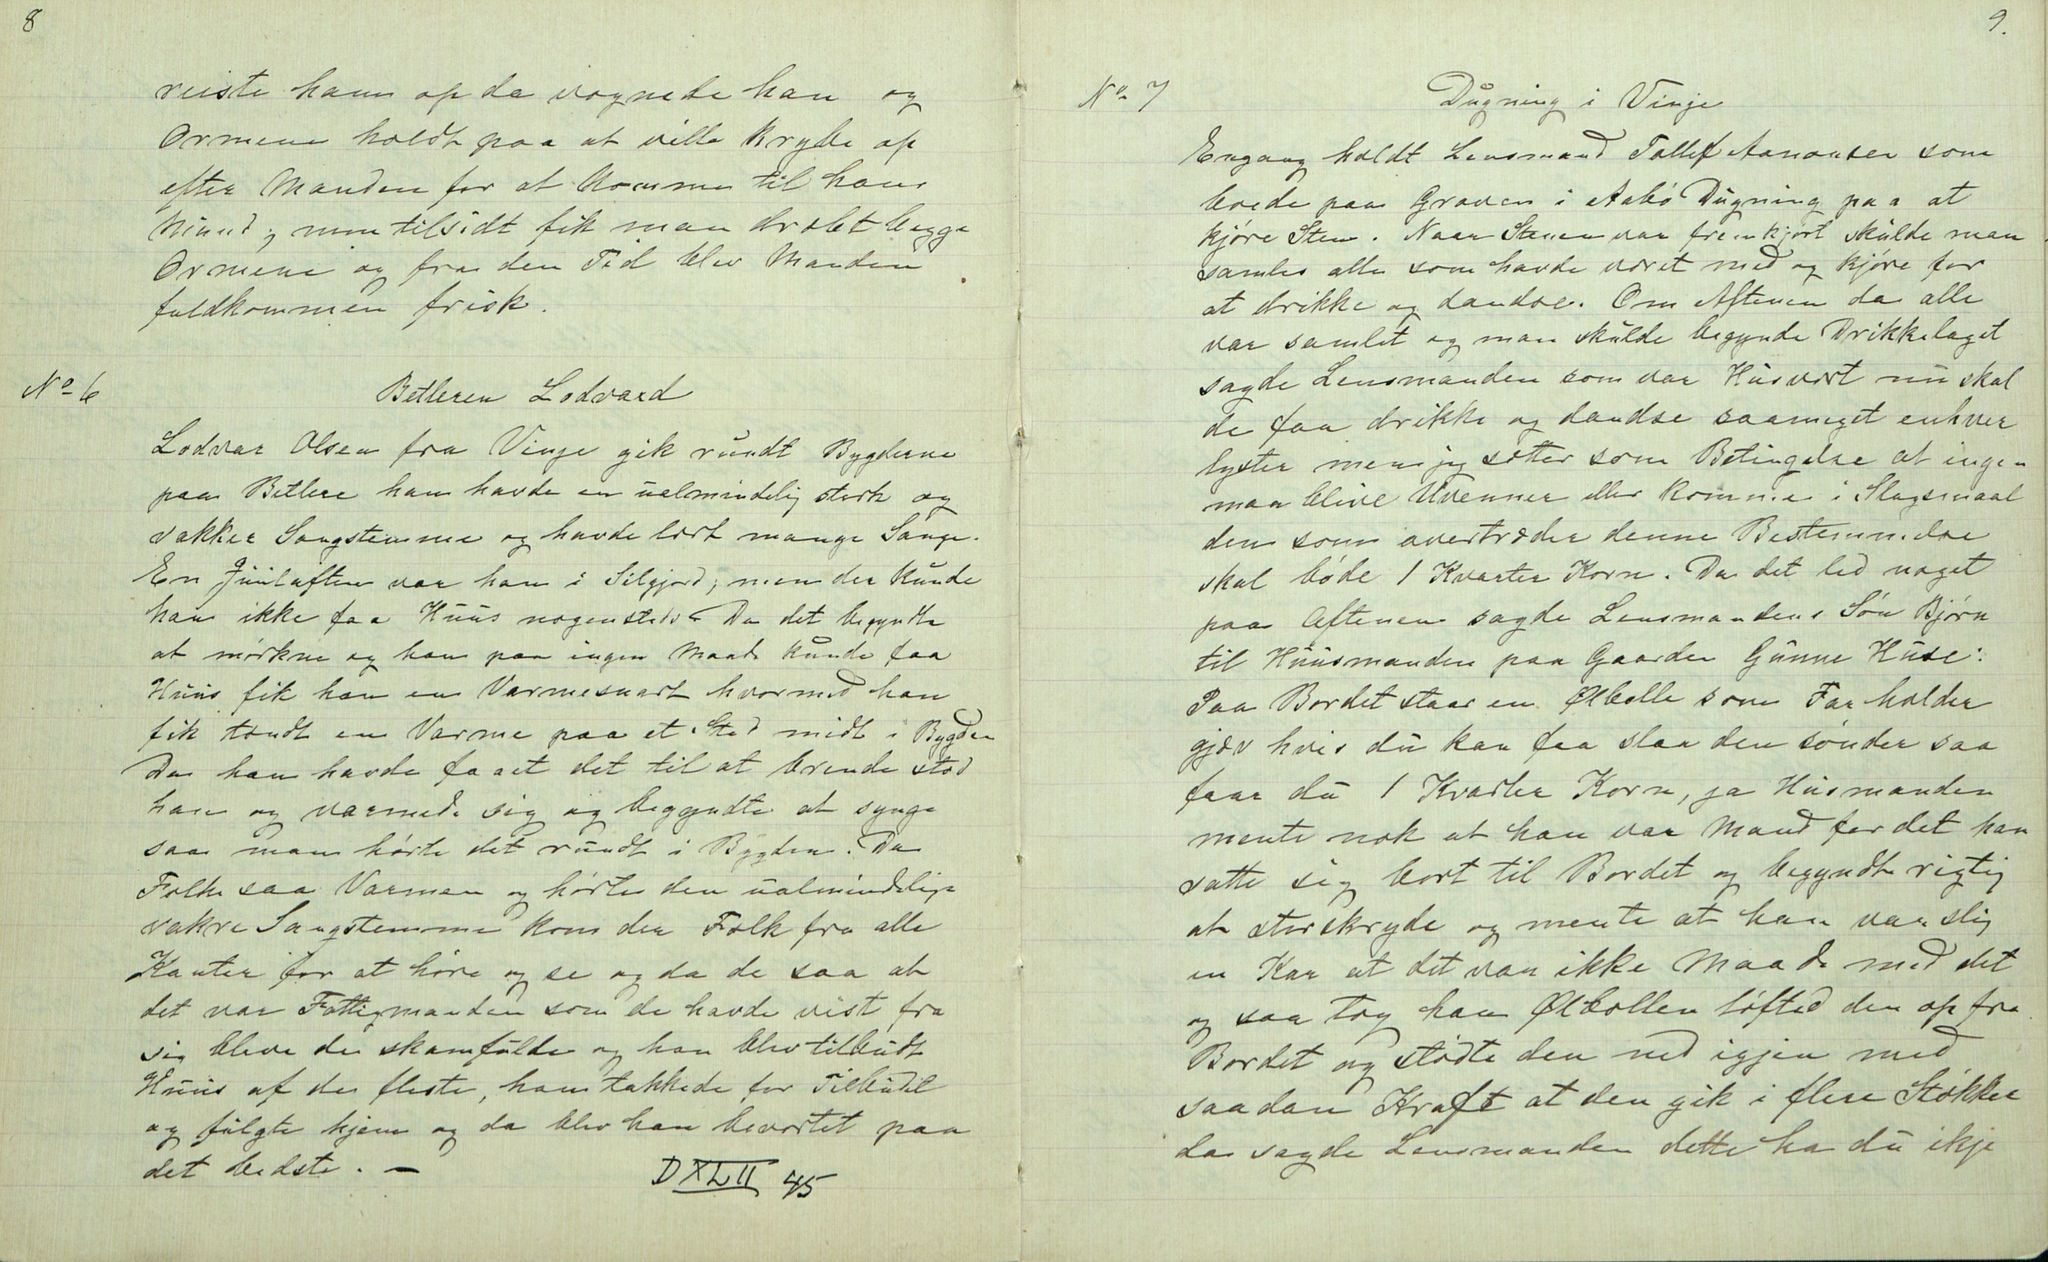 8
reiste ham op da vognede han og
Ormene holdt paa at ville krybe op
efter Manden for at komme til hans
Mund; men tilsidt fik man dræbt begge
Ormene og fra den Tid blev Manden
fuldkommen frisk.
No 6
Betleren Lodvard
Lodvar Olsen fra Vinje gik rundt Bygderne
paa Betleri han havde en ualmindelig sterk og
vakker Sangstemme og havde lært mange Sange.
En Juulaften var han i Silgjord, men der kunde
han ikke faa Huus nogensteds. Da det begyndte
at mørkne og han paa ingen Maade kunde faa
Huus fik han en Varmesnart hvormed han
fik tændt en Varme paa et Sted midt i Bygden
Da han havde faaet det til at brende stod
han og varmede sig og begyndte at synge
saa man hørte det rundt i Bygden. Da
Folk saa Varmen og hørte den ualmindelige
vakre Sangstemme kom der Folk fra alle
Kanter for at høre og se og da de saa at
det var Fattigmanden som de havde vist fra
sig bleve de skamfulde og han blev tilbudt
Huus af de fleste, han takkede for Tilbudet
og fulgte hjem og da blev han bevertet paa
det bedste. —
DXLII 45
9.
No 7
Dugning i Vinje
Engang holdt Lensmand Tollef Aanonsen som
boede paa Graven i Aabø Dugning paa at
kjøre Sten. Naar Stenen var fremkjørt skulde man
samles alle som havde været med og kjøre for
at drikke og dandse. Om Aftenen da alle
var samlet og man skulde begynde Drikkelaget
sagde Lensmanden som var Husvært nu skal
de faa drikke og dandse saameget enhver
lyster men jeg sætter som Betingelse at ingen
maa blive Uvenner eller komme i Slagsmaal
den som overtræder denne Bestemmelse
skal bøde 1 Kvarter Korn. Da det led noget
paa Aftenen sagde Lensmandens Søn Bjørn
til Huusmanden paa Gaarden Gunne Huse:
Paa Bordet staar en Ølbolle som Far holder
gjæv hvis du kan faa slaa den sønder saa
faar du 1 Kvarter Korn, ja Husmanden
mente nok at han var Mand for det han
satte sig bort til Bordet og begyndte rigtig
at storskryde og mente at han var slig
en Kar at det var ikke Maade med det
og saa tog han Ølbollen løfted den op fra
Bordet og stødte den ned igjen med
saadan Kraft at den gik i flere Støkker
da sagde Lensmanden dette ha du ikje